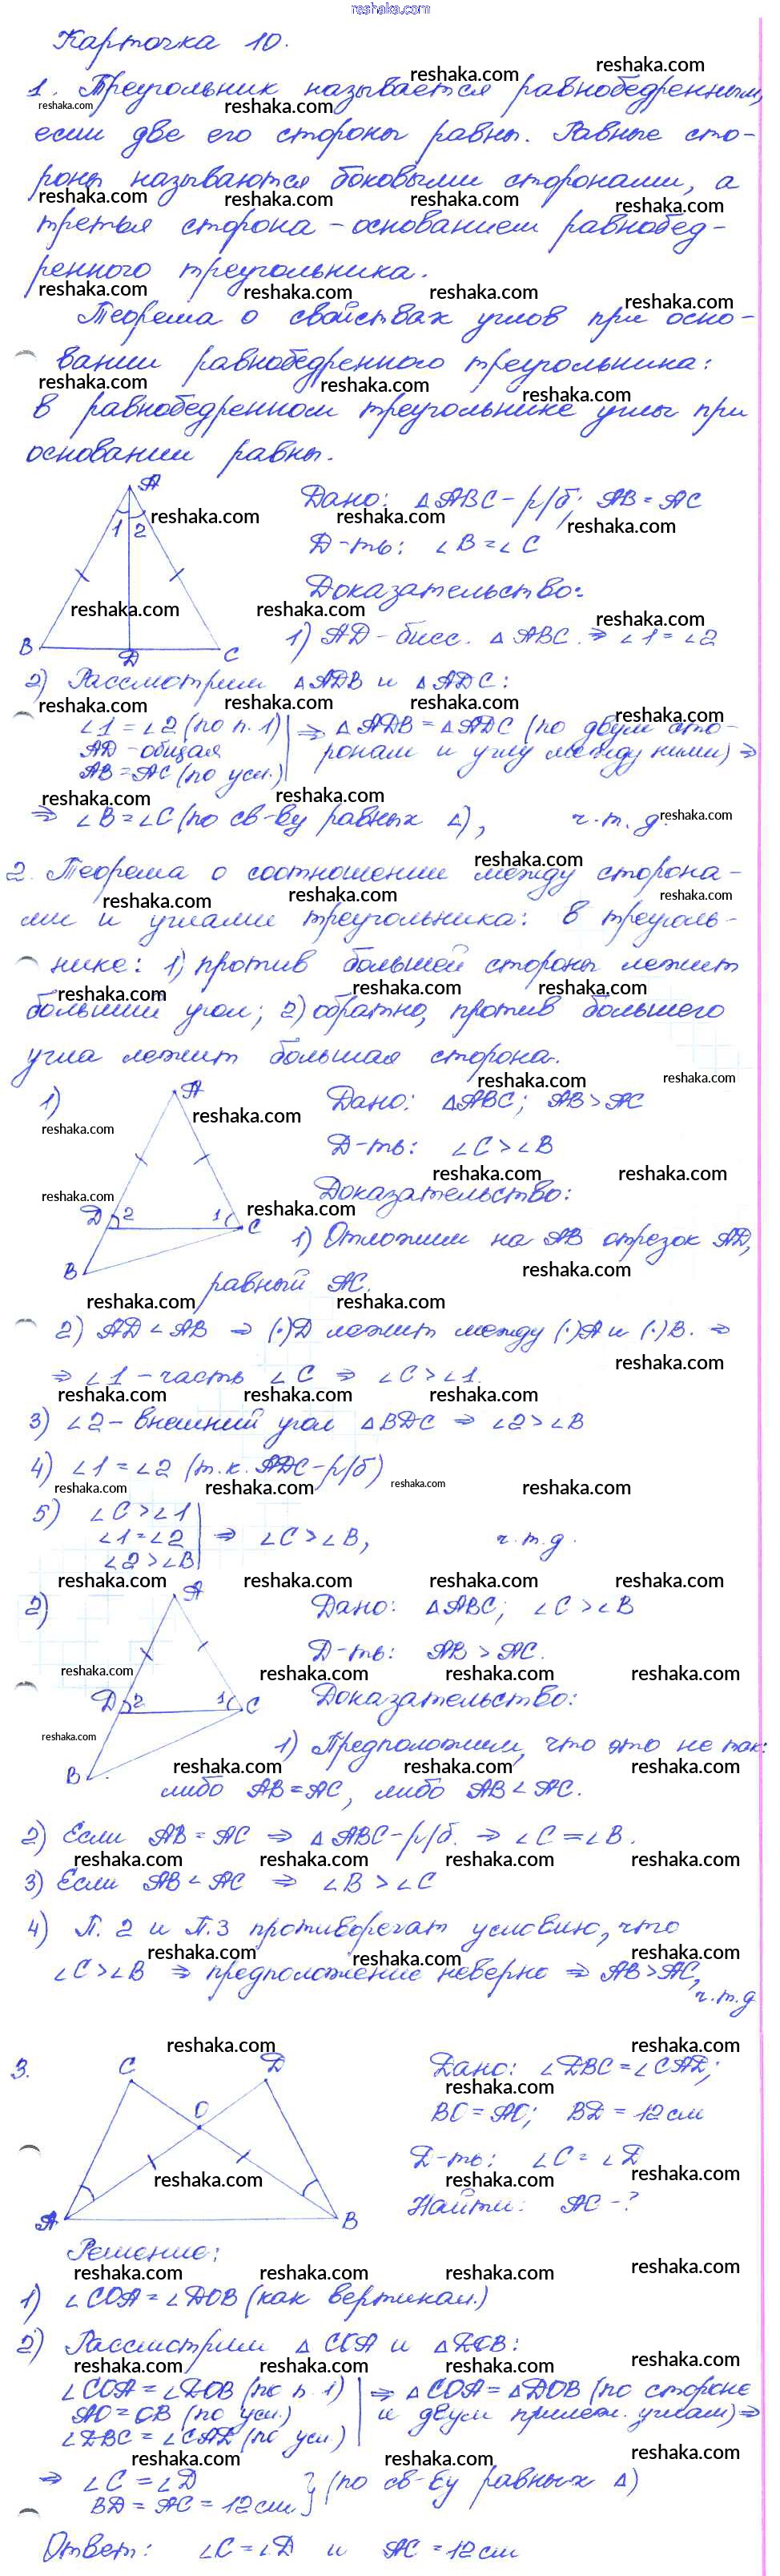 reshaka.com
Карточка 10.
1. Треугольник называется равнобедренным,
если две его стороны равны. Равные сто-
роны называются боковыми сторонами, а
третья сторона - основанием равнобед-
ренного треугольника.
Теорема о свойствах углов при осно-
вании равнобедренного треугольника:
в равнобедренном треугольнике углы при
основании равны.
A
1 2
B D C
Дано: △ABC - р/б; AB = AC
Д-ть: ∠B = ∠C
Доказательство:
1) AD - бисс. △ABC. ⇒ ∠1 = ∠2
2) Рассмотрим △ADB и △ADC:
∠1 = ∠2 (по п. 1) | ⇒ △ADB = △ADC (по двум сто-
AD - общая | ронам и углу между ними) ⇒
AB = AC (по усл.)
⇒ ∠B = ∠C (по св-ву равных △), ч.т.д.
2. Теорема о соотношении между сторона-
ми и углами треугольника: в треуголь-
нике: 1) против большей стороны лежит
больший угол; 2) обратно, против большего
угла лежит большая сторона.
1)
A
D 2 1 C
B
Дано: △ABC; AB > AC
Д-ть: ∠C > ∠B
Доказательство:
1) Отложим на AB отрезок AD,
равный AC.
2) AD < AB ⇒ (·)D лежит между (·)A и (·)B. ⇒
⇒ ∠1 - часть ∠C ⇒ ∠C > ∠1.
3) ∠2 - внешний угол △BDC ⇒ ∠2 > ∠B
4) ∠1 = ∠2 (т.к. ADC - р/б)
5) ∠C > ∠1
∠1 = ∠2 | ⇒ ∠C > ∠B, ч.т.д.
∠2 > ∠B
2)
A
D 2 1 C
B
Дано: △ABC; ∠C > ∠B
Д-ть: AB > AC.
Доказательство:
1) Предположим, что это не так:
либо AB = AC, либо AB < AC.
2) Если AB = AC ⇒ △ABC - р/б. ⇒ ∠C = ∠B.
3) Если AB < AC ⇒ ∠B > ∠C
4) П. 2 и П. 3 противоречат условию, что
∠C > ∠B ⇒ предположение неверно ⇒ AB > AC,
ч.т.д
3.
C D
O
A B
Дано: ∠DBC = ∠CAD;
BO = AO; BD = 12 см
Д-ть: ∠C = ∠D
Найти: AC - ?
Решение:
1) ∠COA = ∠DOB (как вертикал.)
2) Рассмотрим △COA и △DOB:
∠COA = ∠DOB (по п. 1) | ⇒ △COA = △DOB (по стороне
AO = OB (по усл.) | и двум прилеж. углам) ⇒
∠DBC = ∠CAD (по усл.)
⇒ ∠C = ∠D } (по св-ву равных △)
BD = AC = 12 см
Ответ: ∠C = ∠D и AC = 12 см